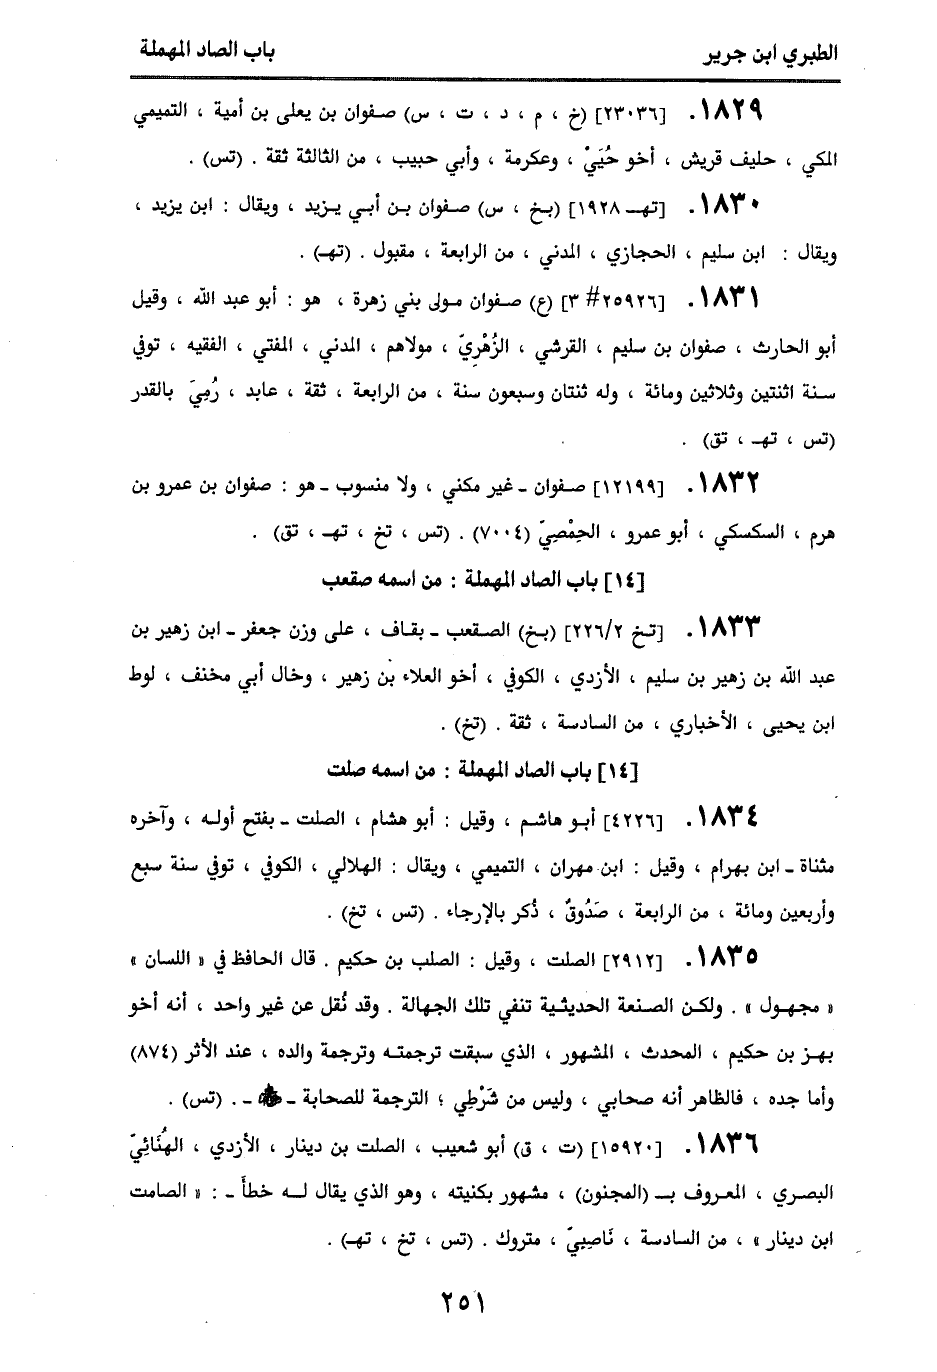 الطبري ابن جرير
باب الصاد المهملة
١٨٢٩. [٢٣٠٣٦] (خ ، م ، د ، ت ، س) صفوان بن يعلى بن أمية ، التميمي
المكي ، حليف قريش ، أخو حُيَيْ ، وعكرمة ، وأبي حبيب ، من الثالثة ثقة . (تس) .
١٨٣٠. [تهـ ١٩٢٨] (بخ ، س) صفوان بن أبي يزيد ، ويقال : ابن يزيد ،
ويقال : ابن سليم ، الحجازي ، المدني ، من الرابعة ، مقبول . (تهـ) .
١٨٣١. [٢٥٩٢٦# ٣] (ع) صفوان مولى بني زهرة ، هو : أبو عبد الله ، وقيل
أبو الحارث ، صفوان بن سليم ، القرشي ، الزُهْرِيّ ، مولاهم ، المدني ، المفتي ، الفقيه ، توفي
سنة اثنتين وثلاثين ومائة ، وله ثنتان وسبعون سنة ، من الرابعة ، ثقة ، عابد ، رُمِيَ بالقدر
(تس ، تهـ ، تق) .
١٨٣٢. [١٢١٩٩] صفوان ـ غير مكني ، ولا منسوب ـ هو : صفوان بن عمرو بن
هرم ، السكسكي ، أبو عمرو ، الحِمْصِيّ (٧٠٠٤) . (تس ، تخ ، تهـ ، تق) .
[١٤] باب الصاد المهملة : من اسمه صقعب
١٨٣٣. [تخ ٢٢٦/٢] (بخ) الصقعب ـ بقاف ، على وزن جعفر ـ ابن زهير بن
عبد الله بن زهير بن سليم ، الأزدي ، الكوفي ، أخو العلاء بن زهير ، وخال أبي مخنف ، لوط
ابن يحيى ، الأخباري ، من السادسة ، ثقة . (تخ) .
[١٤] باب الصاد المهملة : من اسمه صلت
١٨٣٤. [٤٢٢٦] أبو هاشم ، وقيل : أبو هشام ، الصلت ـ بفتح أوله ، وآخره
مثناة ـ ابن بهرام ، وقيل : ابن مهران ، التميمي ، ويقال : الهلالي ، الكوفي ، توفي سنة سبع
وأربعين ومائة ، من الرابعة ، صَدُوقٌ ، ذُكر بالإرجاء . (تس ، تخ) .
١٨٣٥. [٢٩١٢] الصلت ، وقيل : الصلب بن حكيم . قال الحافظ في « اللسان »
« مجهول » . ولكن الصنعة الحديثية تنفي تلك الجهالة . وقد نُقل عن غير واحد ، أنه أخو
بهز بن حكيم ، المحدث ، المشهور ، الذي سبقت ترجمته وترجمة والده ، عند الأثر (٨٧٤)
وأما جده ، فالظاهر أنه صحابي ، وليس من شَرْطِي ؛ الترجمة للصحابة ـ ـ . (تس) .
١٨٣٦. [١٥٩٢٠] (ت ، ق) أبو شعيب ، الصلت بن دينار ، الأزدي ، الهُنَائِيّ
البصري ، المعروف بـ (المجنون) ، مشهور بكنيته ، وهو الذي يقال له خطأ ـ : « الصامت
ابن دينار » ، من السادسة ، نَاصِبيّ ، متروك . (تس ، تخ ، تهـ) .
٢٥١